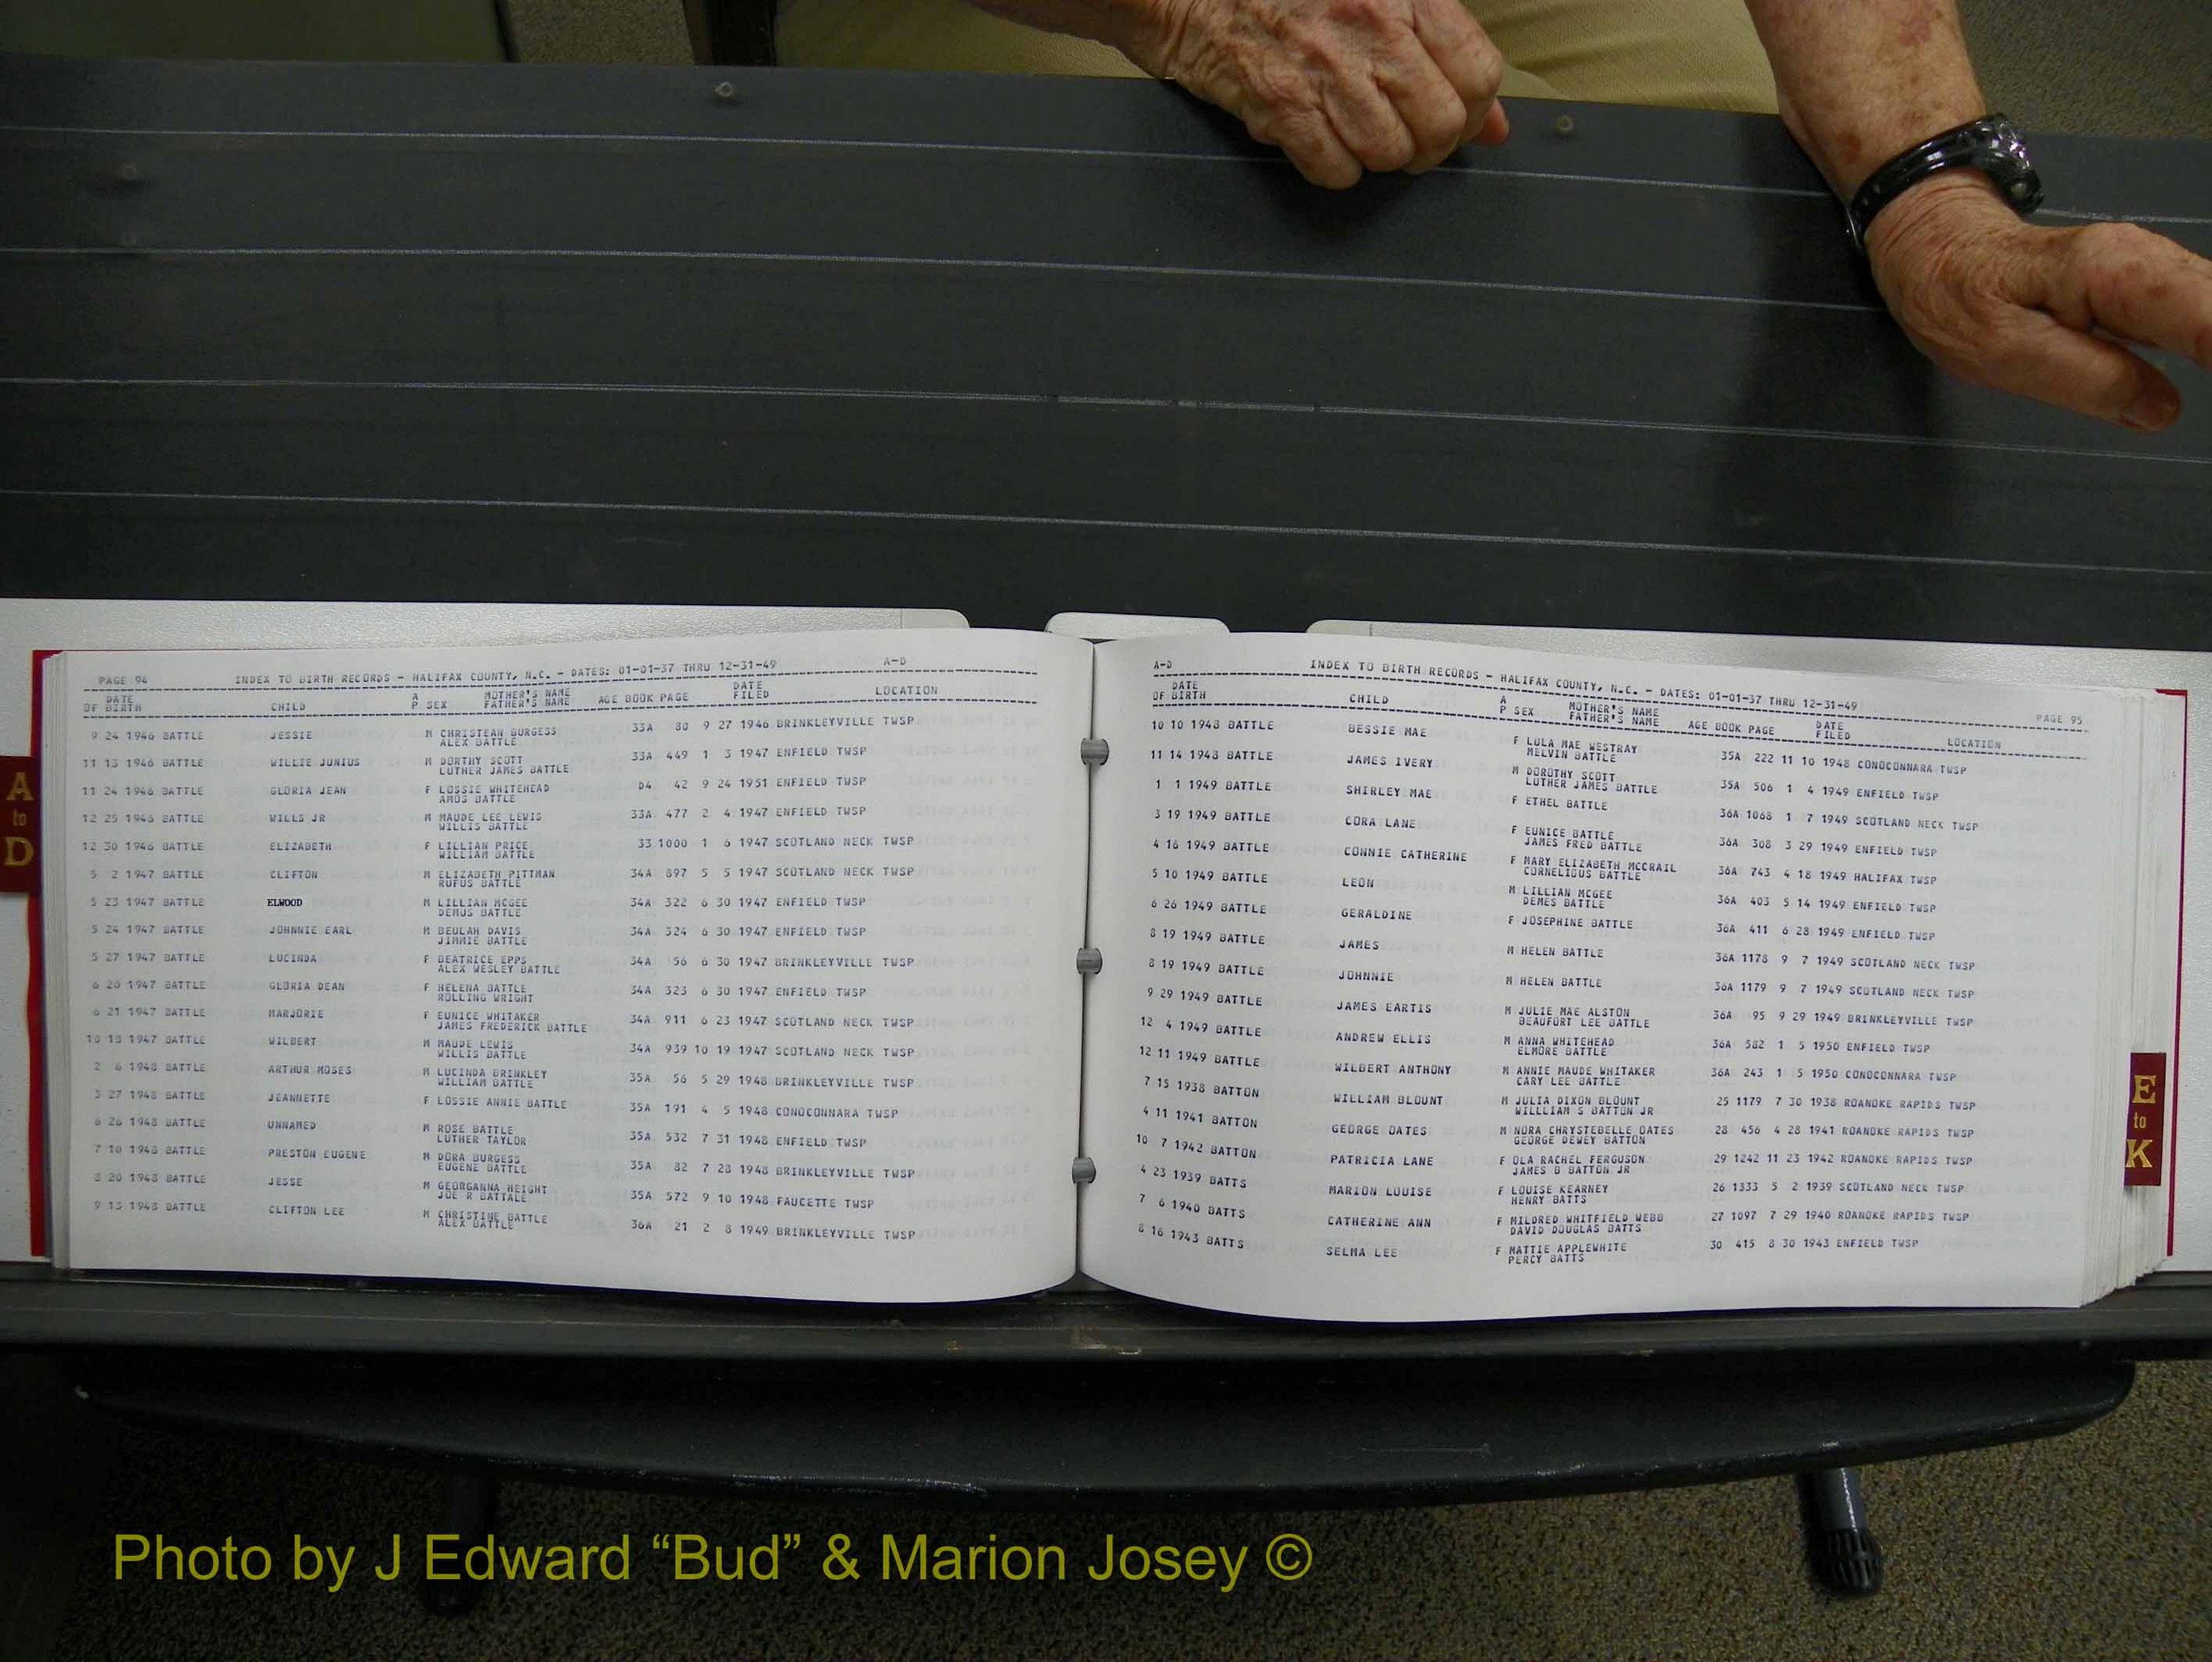 A
to
D
PAGE 94 INDEX TO BIRTH RECORDS - HALIFAX COUNTY, N.C. - DATES: 01-01-37 THRU 12-31-49 A-D
DATE OF BIRTH CHILD A P SEX MOTHER'S NAME FATHER'S NAME AGE BOOK PAGE DATE FILED LOCATION
9 24 1946 BATTLE JESSIE M CHRISTEAN BURGESS 33A 80 9 27 1946 BRINKLEYVILLE TWSP
ALEX BATTLE
11 13 1946 BATTLE WILLIE JUNIUS M DORTHY SCOTT 33A 449 1 3 1947 ENFIELD TWSP
LUTHER JAMES BATTLE
11 24 1946 BATTLE GLORIA JEAN F LOSSIE WHITEHEAD D4 42 9 24 1951 ENFIELD TWSP
AMOS BATTLE
12 25 1946 BATTLE WILLS JR M MAUDE LEE LEWIS 33A 477 2 4 1947 ENFIELD TWSP
WILLIS BATTLE
12 30 1946 BATTLE ELIZABETH F LILLIAN PRICE 33 1000 1 6 1947 SCOTLAND NECK TWSP
WILLIAM BATTLE
5 2 1947 BATTLE CLIFTON M ELIZABETH PITTMAN 34A 897 5 5 1947 SCOTLAND NECK TWSP
RUFUS BATTLE
5 23 1947 BATTLE ELWOOD M LILLIAN MCGEE 34A 322 6 30 1947 ENFIELD TWSP
DEMUS BATTLE
5 24 1947 BATTLE JOHNNIE EARL M BEULAH DAVIS 34A 324 6 30 1947 ENFIELD TWSP
JIMMIE BATTLE
5 27 1947 BATTLE LUCINDA F BEATRICE EPPS 34A 56 6 30 1947 BRINKLEYVILLE TWSP
ALEX WESLEY BATTLE
6 20 1947 BATTLE GLORIA DEAN F HELENA BATTLE 34A 323 6 30 1947 ENFIELD TWSP
ROLLING WRIGHT
6 21 1947 BATTLE MARJORIE F EUNICE WHITAKER 34A 911 6 23 1947 SCOTLAND NECK TWSP
JAMES FREDERICK BATTLE
10 18 1947 BATTLE WILBERT M MAUDE LEWIS 34A 939 10 19 1947 SCOTLAND NECK TWSP
WILLIS BATTLE
2 6 1948 BATTLE ARTHUR MOSES M LUCINDA BRINKLEY 35A 56 5 29 1948 BRINKLEYVILLE TWSP
WILLIAM BATTLE
3 27 1948 BATTLE JEANNETTE F LOSSIE ANNIE BATTLE 35A 191 4 5 1948 CONOCONNARA TWSP
6 26 1948 BATTLE UNNAMED M ROSE BATTLE 35A 532 7 31 1948 ENFIELD TWSP
LUTHER TAYLOR
7 10 1948 BATTLE PRESTON EUGENE M DORA BURGESS 35A 82 7 28 1948 BRINKLEYVILLE TWSP
EUGENE BATTLE
8 20 1948 BATTLE JESSE M GEORGANNA HEIGHT 35A 572 9 10 1948 FAUCETTE TWSP
JOE R BATTALE
9 13 1948 BATTLE CLIFTON LEE M CHRISTINE BATTLE 36A 21 2 8 1949 BRINKLEYVILLE TWSP
ALEX BATTLE
A-D INDEX TO BIRTH RECORDS - HALIFAX COUNTY, N.C. - DATES: 01-01-37 THRU 12-31-49 PAGE 95
DATE OF BIRTH CHILD A P SEX MOTHER'S NAME FATHER'S NAME AGE BOOK PAGE DATE FILED LOCATION
10 10 1948 BATTLE BESSIE MAE F LULA MAE WESTRAY 35A 222 11 10 1948 CONOCONNARA TWSP
MELVIN BATTLE
11 14 1948 BATTLE JAMES IVERY M DOROTHY SCOTT 35A 506 1 4 1949 ENFIELD TWSP
LUTHER JAMES BATTLE
1 1 1949 BATTLE SHIRLEY MAE F ETHEL BATTLE 36A 1068 1 7 1949 SCOTLAND NECK TWSP
3 19 1949 BATTLE CORA LANE F EUNICE BATTLE 36A 308 3 29 1949 ENFIELD TWSP
JAMES FRED BATTLE
4 16 1949 BATTLE CONNIE CATHERINE F MARY ELIZABETH MCCRAIL 36A 743 4 18 1949 HALIFAX TWSP
CORNELIOUS BATTLE
5 10 1949 BATTLE LEON M LILLIAN MCGEE 36A 403 5 14 1949 ENFIELD TWSP
DEMES BATTLE
6 26 1949 BATTLE GERALDINE F JOSEPHINE BATTLE 36A 411 6 28 1949 ENFIELD TWSP
8 19 1949 BATTLE JAMES M HELEN BATTLE 36A 1178 9 7 1949 SCOTLAND NECK TWSP
8 19 1949 BATTLE JOHNNIE M HELEN BATTLE 36A 1179 9 7 1949 SCOTLAND NECK TWSP
9 29 1949 BATTLE JAMES EARTIS M JULIE MAE ALSTON 36A 95 9 29 1949 BRINKLEYVILLE TWSP
BEAUFORT LEE BATTLE
12 4 1949 BATTLE ANDREW ELLIS M ANNA WHITEHEAD 36A 582 1 5 1950 ENFIELD TWSP
ELMORE BATTLE
12 11 1949 BATTLE WILBERT ANTHONY M ANNIE MAUDE WHITAKER 36A 243 1 5 1950 CONOCONNARA TWSP
CARY LEE BATTLE
7 15 1938 BATTON WILLIAM BLOUNT M JULIA DIXON BLOUNT 25 1179 7 30 1938 ROANOKE RAPIDS TWSP
WILLLIAM S BATTON JR
4 11 1941 BATTON GEORGE OATES M NORA CHRYSTEBELLE OATES 28 456 4 28 1941 ROANOKE RAPIDS TWSP
GEORGE DEWEY BATTON
10 7 1942 BATTON PATRICIA LANE F OLA RACHEL FERGUSON 29 1242 11 23 1942 ROANOKE RAPIDS TWSP
JAMES B BATTON JR
4 23 1939 BATTS MARION LOUISE F LOUISE KEARNEY 26 1333 5 2 1939 SCOTLAND NECK TWSP
HENRY BATTS
7 6 1940 BATTS CATHERINE ANN F MILDRED WHITFIELD WEBB 27 1097 7 29 1940 ROANOKE RAPIDS TWSP
DAVID DOUGLAS BATTS
8 16 1943 BATTS SELMA LEE F MATTIE APPLEWHITE 30 415 8 30 1943 ENFIELD TWSP
PERCY BATTS
E
to
K
Photo by J Edward “Bud” & Marion Josey ©